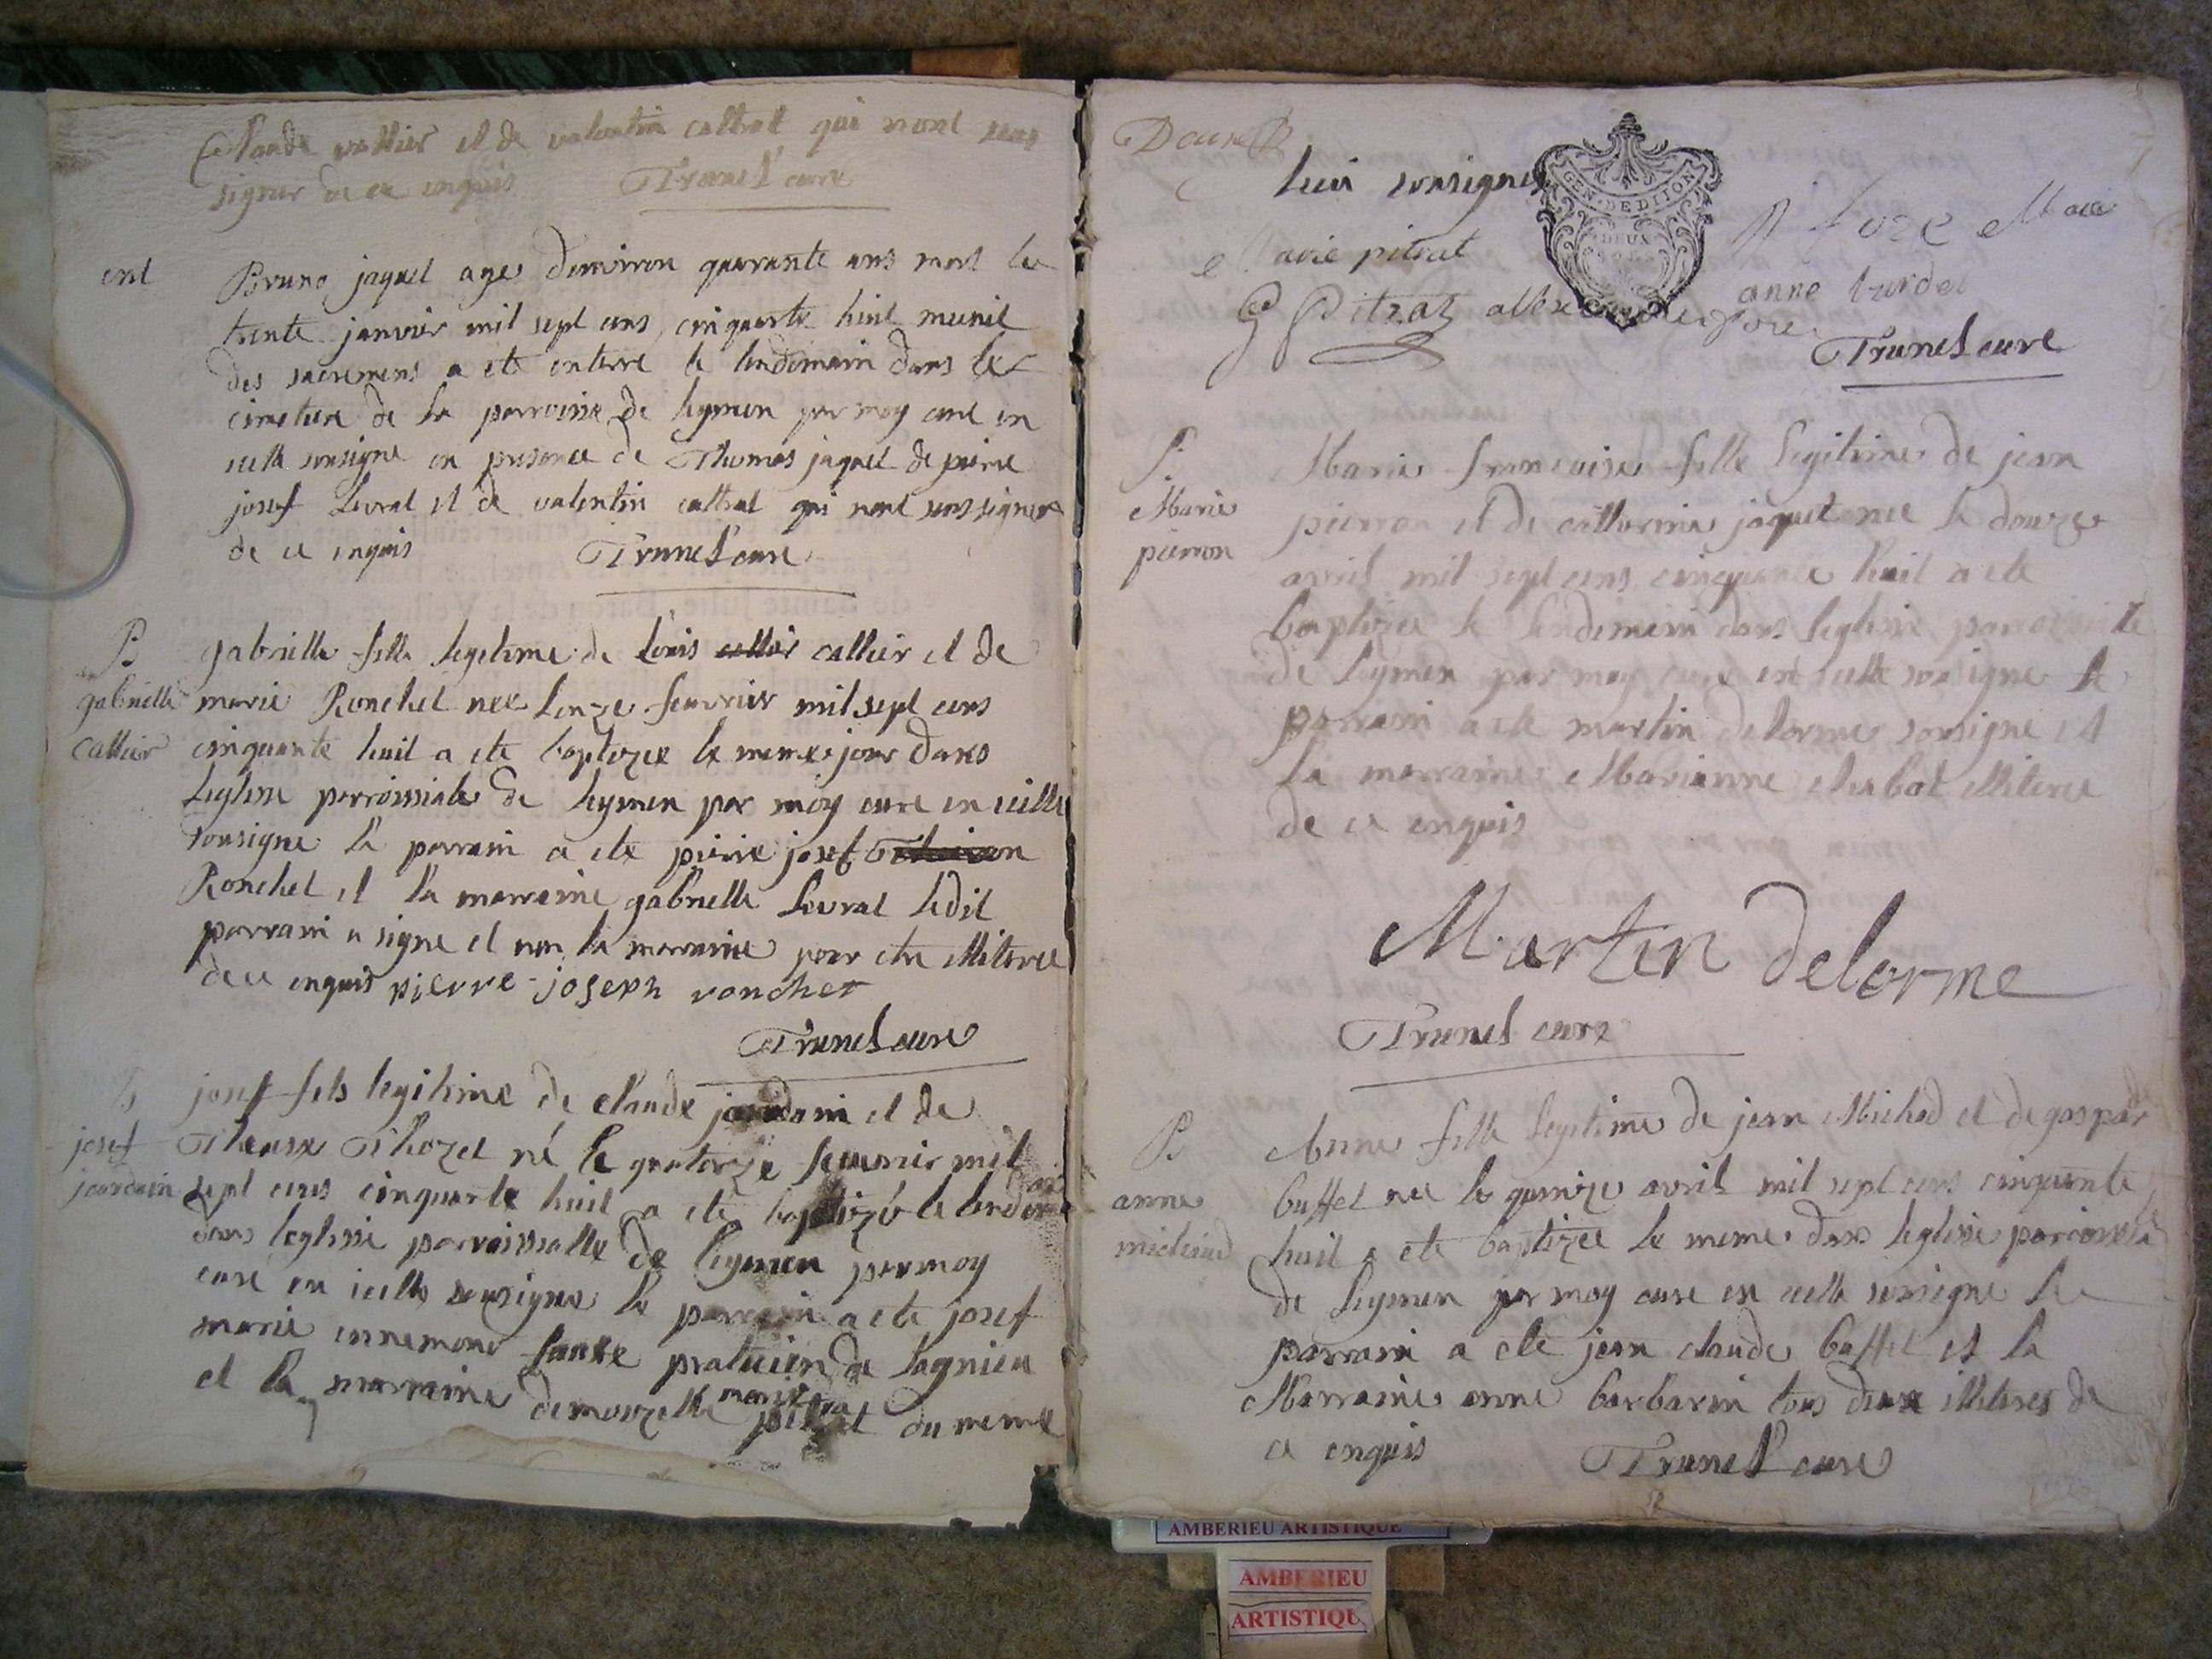 Claude vallier et de valentin cattrat qui nont sceus
signer de ce enquis Trunel cure
ent
Bruno jaquet age denviron quarante ans mort le
trente janvier mil sept cens cinquante huit munit
des sacremens a ete enterre le lendemain dans le
cimetiere de la parroisse de leymen par moy cure en
icelle sousigne en presence de Thomas jaquet de pierre
josef Levrat et de valentin cattrat qui nont sceus signer
de ce enquis Trunel cure
B
gabrielle
Callier
gabrielle fille legitime de Louis callier et de
marie Ronchet nee lonze feuvrier mil sept cens
cinquante huit a ete baptizee le meme jour dans
leglisse parroissiale de leymen par moy cure en icelle
sousigne le parrain a ete pierre josef
Ronchet et la marraine gabrielle Levrat ledit
parrain a signe et non la marraine pour etre illiteree
de ce enquis pierre-joseph ronchet
Trunel cure
B
josef
jourdain
josef fils legitime de Claude jourdain et de
Thozet né le quatorze feuvrier mil
sept cens cinquante huit a ete baptizé le lendemain
dans leglisse parroissialle de leymen par moy
cure en icelle sousigne le parrain a ete josef
marie ennemond praticien de lagnieu
et la marraine demoizelle marie pitrat du meme
lieu sousignes
GEN. DE DIJON
DEUX
marie pitrat
anne
Pitrat
Trunel cure
B
Marie
pierron
Marie francoise fille legitime de jean
pierron et de catherine jaquet nee le douze
avril mil sept cens cinquante huit a ete
baptizee le lendemain dans leglisse parroissialle
de leymen par moy cure en icelle sousigne le
parrain a ete martin delorme sousigne et
la marraine Marianne illiteree
de ce enquis
Martin delorme
Trunel cure
B
anne
michaud
Anne fille legitime de jean Michod et de gasparde
buffet nee le quinze avril mil sept cens cinquante
huit a ete baptizee le meme dans leglisse parroissiale
de leymen par moy cure en icelle sousigne le
parrain a ete jean claude buffet et la
Marraine anne barbarin tous deux illiteres de
ce enquis Trunel cure
AMBERIEU ARTISTIQUE
AMBERIEU
ARTISTIQU